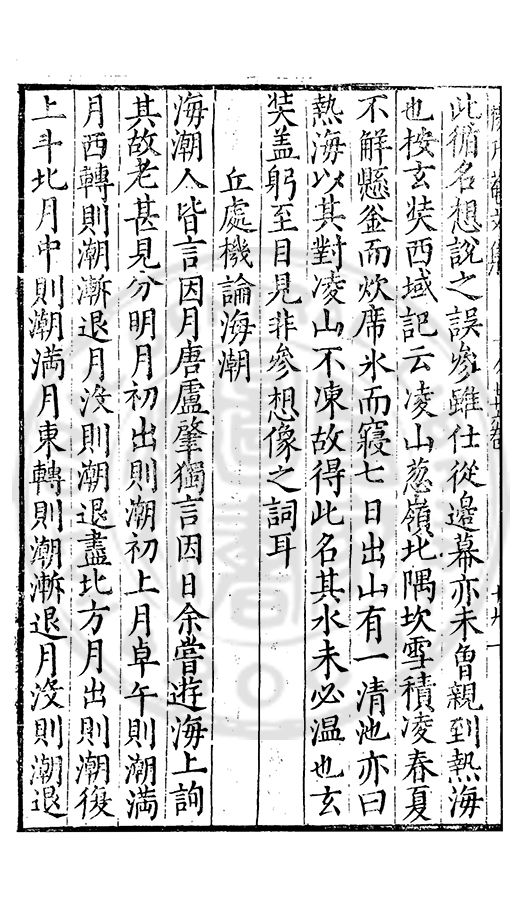 此循名想說之誤參雖仕從邊幕亦未曾親到熱海
也按玄奘西域記云凌山葱嶺北隅坎雪積凌春夏
不解懸釜而炊席氷而寢七日出山有一清池亦曰
熱海以其對凌山不凍故得此名其水未必温也玄
奘盖躬至目見非參想像之詞耳
丘處機論海潮
海潮人皆言因月唐盧肇獨言因日余嘗遊海上詢
其故老甚見分明月初出則潮初上月卓午則潮滿
月西轉則潮漸退月没則潮退盡北方月出則潮復
上斗北月中則潮滿月東轉則潮漸退月没則潮退